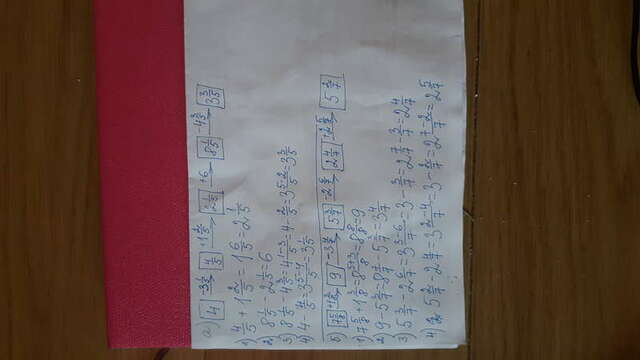 а) 4 −3 1/5→ 4/5 +1 2/5→ 2 1/5 +6→ 8 1/5 −4 3/5→ 3 3/5
1) 4/5 + 1 2/5 = 1 6/5 = 2 1/5
2) 8 1/5 − 2 1/5 = 6
3) 8 1/5 − 4 3/5 = 4 (1−3)/5 = 4 − 2/5 = 3 (5−2)/5 = 3 3/5
4) 4 − 4/5 = 3 (5−4)/5 = 3 1/5
б) 7 5/8 +1 3/8→ 9 −3 4/7→ 5 3/7 −2 6/7→ 2 4/7 +2 5/7→ 5 2/7
1) 7 5/8 + 1 3/8 = 8 (5+3)/8 = 8 8/8 = 9
2) 9 − 5 3/7 = 8 7/7 − 5 3/7 = 3 4/7
3) 5 3/7 − 2 6/7 = 3 (3−6)/7 = 3 − 3/7 = 2 7/7 − 3/7 = 2 4/7
4) 5 2/7 − 2 4/7 = 3 (2−4)/7 = 3 − 2/7 = 2 (7−2)/7 = 2 5/7